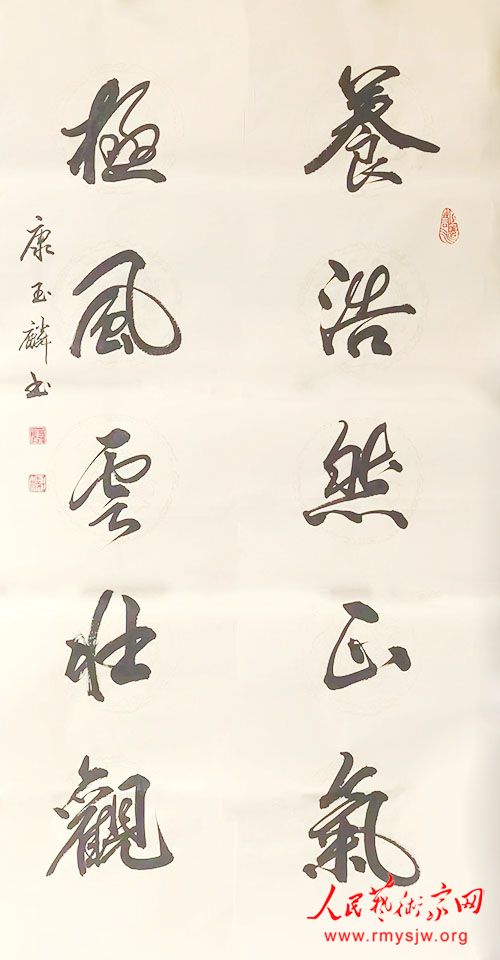 養浩然正氣
極風雲壯觀
康玉麟书
人民藝術家网
www.rmysjw.org